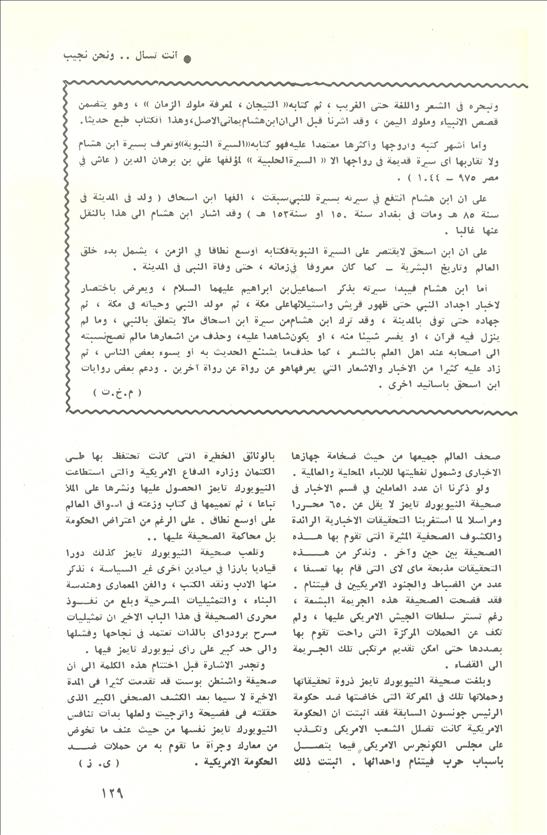 ● انت تسأل .. ونحن نجيب
وتبحره فى الشعر واللغة حتى الغريب ، ثم كتابه « التيجان ، لمعرفة ملوك الزمان » ، وهو يتضمن
قصص الانبياء وملوك اليمن ، وقد اشرنا قبل الى ان ابن هشام يمانى الاصل، وهذا الكتاب طبع حديثا.
واما أشهر كتبه واروجها وأكثرها معتمدا عليه فهو كتابه «السيرة النبوية» وتعرف بسيرة ابن هشام
ولا تقاربها أى سيرة قديمة فى رواجها الا « السيرة الحلبية » لمؤلفها علي بن برهان الدين ( عاش في
مصر ٩٧٥ – ١٠٤٤ ) .
على ان ابن هشام انتفع فى سيرته بسيرة للنبي سبقت ، الفها ابن اسحاق ( ولد فى المدينة فى
سنة ٨٥ هـ ومات فى بغداد سنة ١٥٠ او سنة ١٥٣ هـ ) وقد اشار ابن هشام الى هذا بالنقل
عنها غالبا .
على ان ابن اسحق لا يقتصر على السيرة النبوية فكتابه اوسع نطاقا فى الزمن ، يشمل بدء خلق
العالم وتاريخ البشرية – كما كان معروفا فى زمانه ، حتى وفاة النبى فى المدينة .
أما ابن هشام فيبدأ سيرته بذكر اسماعيل بن ابراهيم عليهما السلام ، ويعرض باختصار
لاخبار اجداد النبي حتى ظهور قريش واستيلائها على مكة ، ثم مولد النبى وحياته فى مكة ، ثم
جهاده حتى توفى بالمدينة ، وقد ترك ابن هشام من سيرة ابن اسحاق مالا يتعلق بالنبي ، وما لم
ينزل فيه قرآن ، او يفسر شيئا منه ، او يكون شاهدا عليه، وحذف من اشعارها مالم تصح نسبته
الى اصحابه عند اهل العلم بالشعر ، كما حذف ما يشنع الحديث به أو يسوء بعض الناس ، ثم
زاد عليه كثيرا من الاخبار والاشعار التي يعرفها هو عن رواة عن رواة آخرين . ودعم بعض روايات
ابن اسحق بأسانيد اخرى .
( م.خ.ت )
صحف العالم جميعها من حيث ضخامة جهازها
الاخبارى وشمول تغطيتها للانباء المحلية والعالمية .
ولو ذكرنا أن عدد العاملين فى قسم الاخبار فى
صحيفة النيويورك تايمز لا يقل عن ٦٥٠ محررا
ومراسلا لما استغربنا التحقيقات الاخبارية الرائدة
والكشوف الصحفية المثيرة التى تقوم بها هذه
الصحيفة بين حين وآخر . ونذكر من هذه
التحقيقات مذبحة ماى لاى التى قام بها تعسفا ،
عدد من الضباط والجنود الامريكيين فى فيتنام .
فقد فضحت الصحيفة هذه الجريمة البشعة ،
رغم تستر سلطات الجيش الامريكى عليها ، ولم
تكف عن الحملات المركزة التى راحت تقوم بها
بصددها حتى امكن تقديم مرتكبى تلك الجريمة
الى القضاء .
وبلغت صحيفة النيويورك تايمز ذروة تحقيقاتها
وحملاتها تلك فى المعركة التى خاضتها ضد حكومة
الرئيس جونسون السابقة فقد أثبتت أن الحكومة
الامريكية كانت تضلل الشعب الامريكى وتكذب
على مجلس الكونجرس الامريكى فيما يتصل
بأسباب حرب فيتنام واحداثها . اثبتت ذلك
بالوثائق الخطيرة التى كانت تحتفظ بها طى
الكتمان وزارة الدفاع الامريكية والتى استطاعت
النيويورك تايمز الحصول عليها ونشرها على الملأ
تباعا ، ثم تعميمها فى كتاب وزعته فى اسواق العالم
على أوسع نطاق . على الرغم من اعتراض الحكومة
بل محاكمة الصحيفة عليها ..
وتلعب صحيفة النيويورك تايمز كذلك دورا
قياديا بارزا في ميادين أخرى غير السياسة ، نذكر
منها الادب ونقد الكتب ، والفن المعمارى وهندسة
البناء ، والتمثيليات المسرحية وبلغ من نفوذ
محررى الصحيفة فى هذا الباب الاخير ان تمثيليات
مسرح برودواى بالذات تعتمد في نجاحها وفشلها
والى حد كبير على رأى نيويورك تايمز فيها .
وتجدر الاشارة قبل اختتام هذه الكلمة الى أن
صحيفة واشنطن بوست قد تقدمت كثيرا فى المدة
الاخيرة لا سيما بعد الكشف الصحفى الكبير الذى
حققته فى فضيحة واترجيت ولعلها بدأت تنافس
النيويورك تايمز نفسها من حيث عنف ما تخوض
من معارك وجرأة ما تقوم به من حملات ضد
الحكومة الامريكية .
( ى. ز )
١٢٩